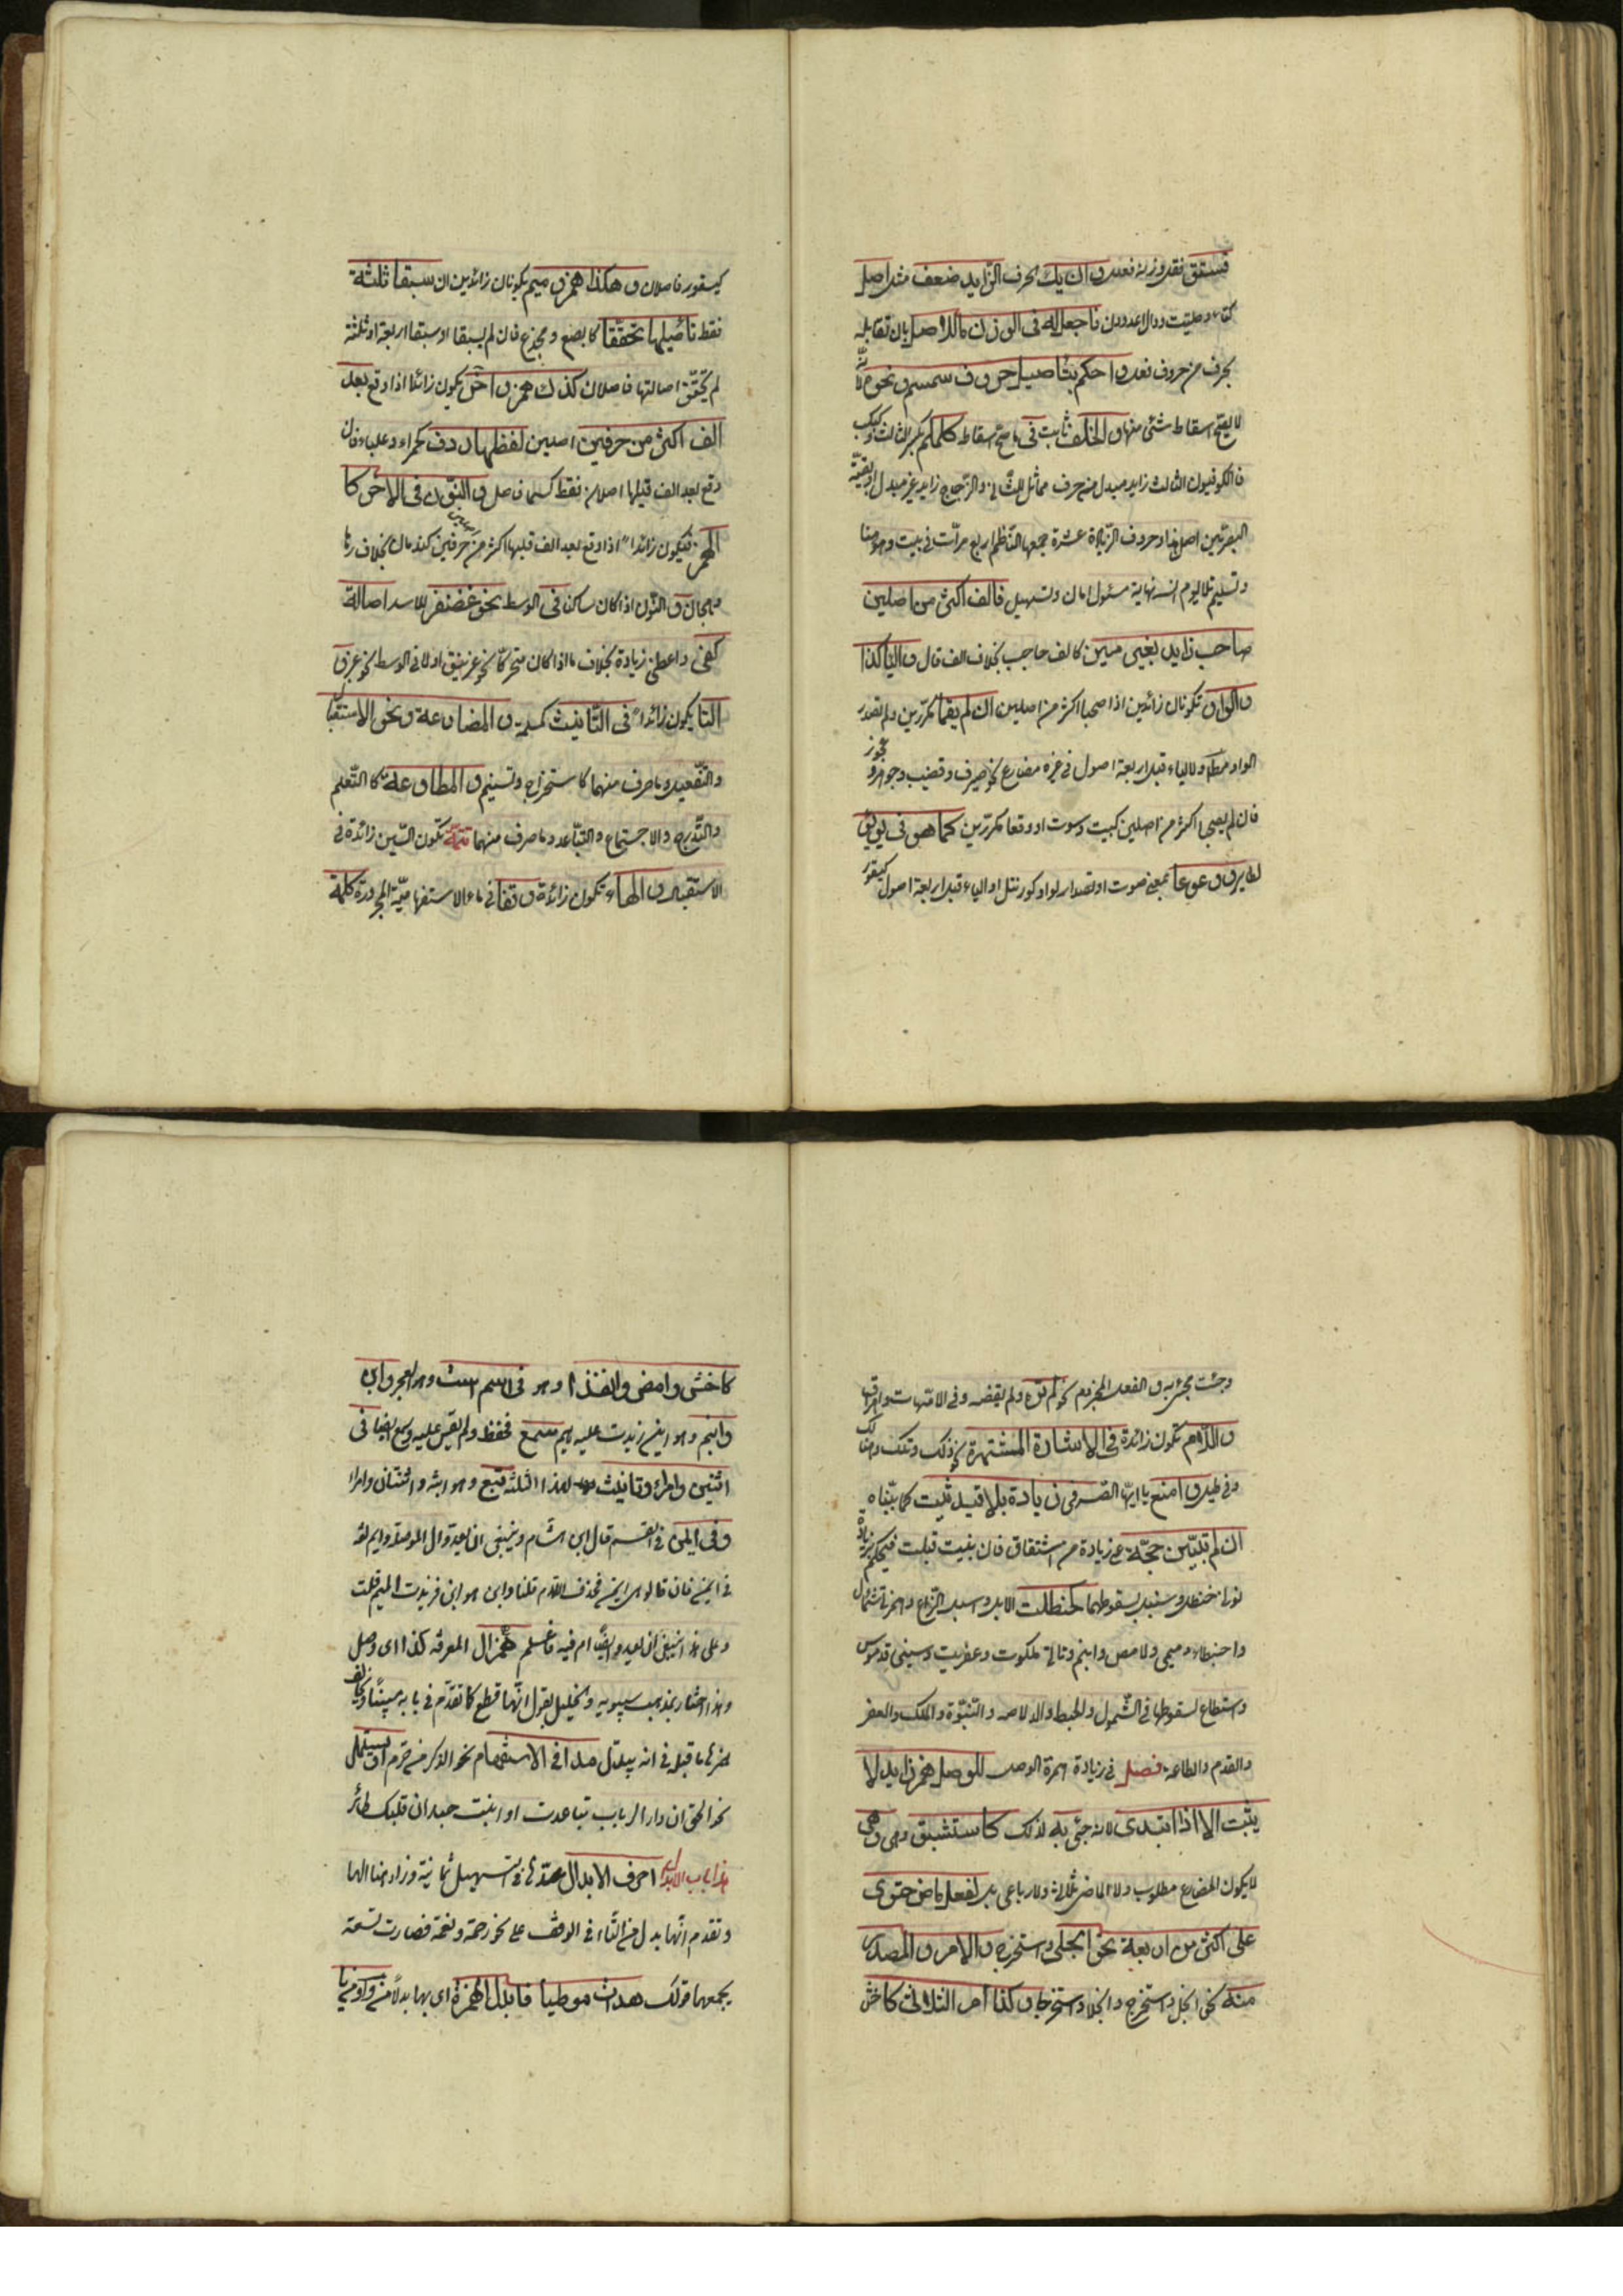 فستق فقل وزنه فعلل وان يك الحرف الزايد ضعف مثل اصل
كتاء حلتيت ودال اغدودن فاجعل له في الوزن ما للاصل بان تقابله
بحرف من حروف فعل واحكم بتاصيل حروف سمسم ونحوه لانه
لا يصح اسقاط شئ منها والخلف ثابت في ما صح اسقاط كلملم بكسر الثالث وكبكب
فالكوفيون الثالث زايد مبدل من حرف مماثل للثاني والزجاج زايد غير مبدل وبقية
البصريين اصل هذا وحروف الزيادة عشرة جمعها الناظم اربع مرات في بيت وهو هنا
وتسليم تلا يوم انسه نهاية مسئول امان وتسهيل فالف اكثر من اصلين
صاحب زايد بغير مين كالف حاجب بخلاف الف قال واليا كذا
والواو تكونان زائدين اذا صحبا اكثر من اصلين ان لم يقعا مكررين ولم تصدر
الواو مطلقا ولا الياء قبل اربعة اصول في غير مضارع نحو صيرف وقضيب وجوهر وعجوز
فان لم يصحبا اكثر من اصلين كبيت وسوت او وقعا مكررين كما هو في يؤيؤ
لطاير ووعوعا بمعنى صوت او تصدر الواو كورنتل او الياء قبل اربعة اصول كيستعور
كيستعور فاصلان وهكذا همز وميم يكونان زائدين ان سبقا ثلثة
فقط تأصيلها تحققا كاصبع ومخدع فان لم يسبقا او سبقا اربعة او ثلثة
لم يتحقق اصالتها فاصلان كذلك همز واخر يكون زائدا اذا وقع بعد
الف اكثر من حرفين اصلين لفظها ردف كحمراء وعلباء فان
وقع بعد الف قبلها اصلان فقط ككساء فاصل والنون في الاخر كا
لهمز فيكون زائدا اذا وقع بعد الف قبلها اكثر من حرفين كندمان بخلاف رهان
وهجان والنون اذا كان ساكن في الوسط نحو غضنفر للاسد اصالة
كفي واعطى زيادة بخلاف ما اذا كان متحركا نحو غرنيق او لا في الوسط نحو عنبر و
التا يكون زائدا في التانيث كمسلمة والمضارعة ونحو الاستفعال
والتفعيل وما صرف منهما كاستخراج وتسنيم والمطاوعة كالتعلم
والتدحرج والاجتماع والتباعد وما صرف منهما تتمة تكون السين زائدة في
الاستفعال والهاء تكون زائدة وقفا في ما الاستفهامية المجرورة كلمة
وجئت مجئ مه والفعل المجزوم نحو لم تره ولم يقضه وفي الامهات واهراق
واللام تكون زائدة في الاشارة المشتهرة نحو ذلك وتلك وهنالك
وفي طيسل وامنع يا ايها الصرفي زيادة بلا قيد ثبت كما بيناه
ان لم تبين حجة على زيادة من اشتقاق فان بينت قبلت فيحكم بزيادة
نوني حنظل وسنبل لسقوطهما كحنظلت الابل واسبل الزرع وهمزة شمأل
واحبنطاء وميمي دلامص وابنم وتائي ملكوت وعفريت وسيني قدموس
واستطاع لسقوطها في الشمول والحبط والدلاصة والبنوة والملك والعفر
والقدم والطاعة فصل في زيادة همزة الوصل للوصل همز زايد لا
يثبت الا اذا ابتدى لانه جئ به لذلك كاستثبتوا وهو
لا يكون المضارع مطلوب ولا لماضي ثلاثي ولا رباعي بل لفعل ماض حتوى
على اكثر من اربعة نحو انجلى واستخرج والامر والمصدر
منه نحو انجل واستخرج وانجلاء واستخراجا وكذا امر الثلاثي كاخش
كاخش وامض وانفذا وهو في اسم است وهو العجز وابن
وابنم وهو ابن زيدت عليه ميم سمع فحفظ ولم يقس عليه وسمع ايضا في
اثنين وامرئ وتانيث لهذه الثلثة تبع وهو ابنة واثنتان وامراة
وفي ايمن في القسم قال ابن هشام وينبغي ان يعد وال الموصلة وايم لغة
في ايمن فان قالوا هي ايمن فحذفت اللام قلنا وابنم هو ابن فزيدت الميم قلت
وعلى هذا ينبغي ان يعد ايضا ام فيه فاعلم همز ال المعرفة كذا اى وصل
وهذا اختيار مذهب سيبويه والخليل يقول انها قطع كما تقدم في بابه مبينا ويخالف
همز ما قبله في انه يبدل مدا في الاستفهام نحو الذكرين حرم او يسهل
نحو الحق ان دار الرباب تباعدت او انبت حبل ان قلبك طائر
هذا باب الابدال احرف الابدال عدها في التسهيل ثمانية وزاد هنا الها
وتقدم انها بدل من التاء في الوقف على نحو رحمة ونعمة فصارت تسعة
يجمعها قولك هدات موطيا فابدل الهمزة اى بها بدلا من واو ومن يا